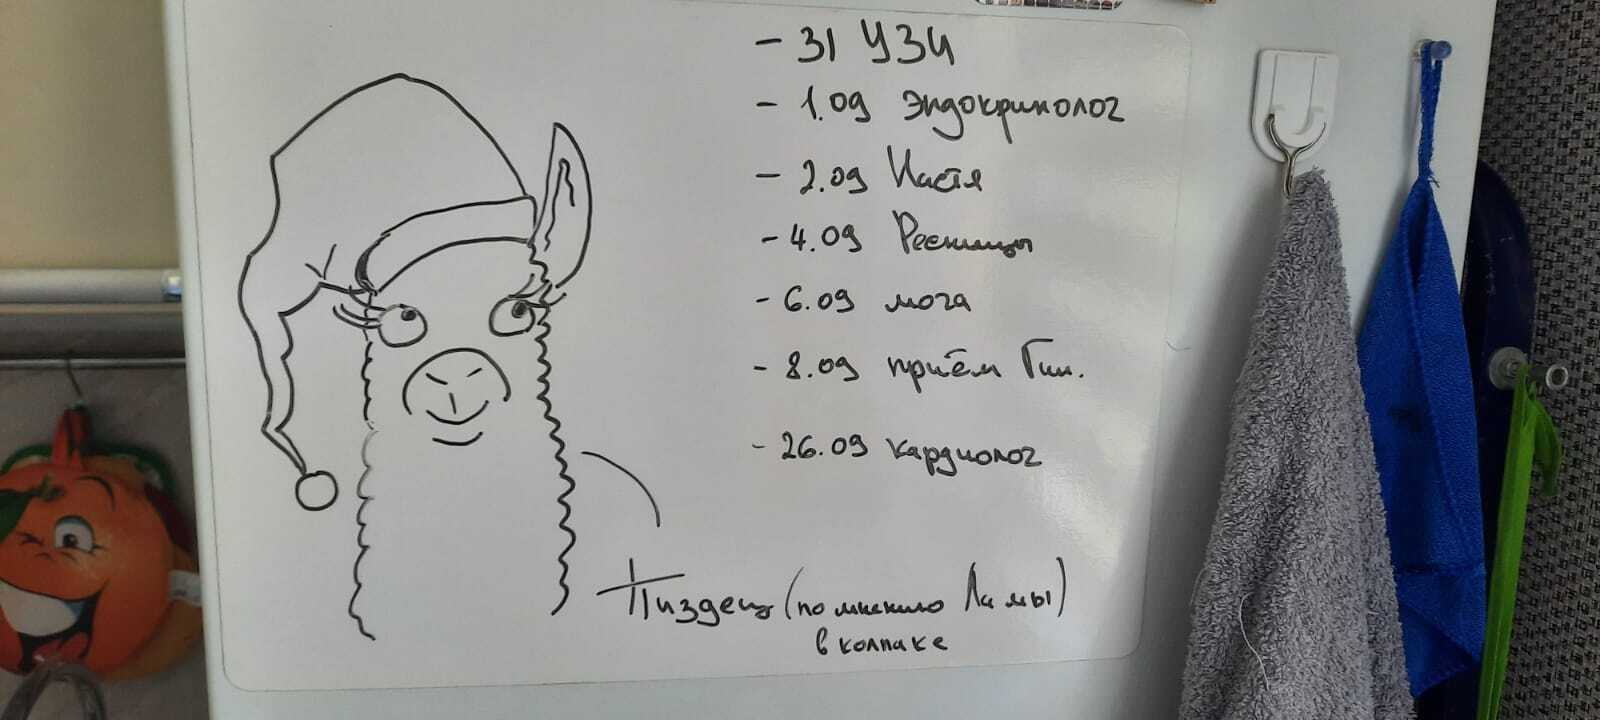 - 31 УЗИ
- 1.09 Эндокринолог
- 2.09 Настя
- 4.09 Ресницы
- 6.09 мога
- 8.09 приём Гин.
- 26.09 кардиолог
Пиздец (по мнению Ламы)
в колпаке